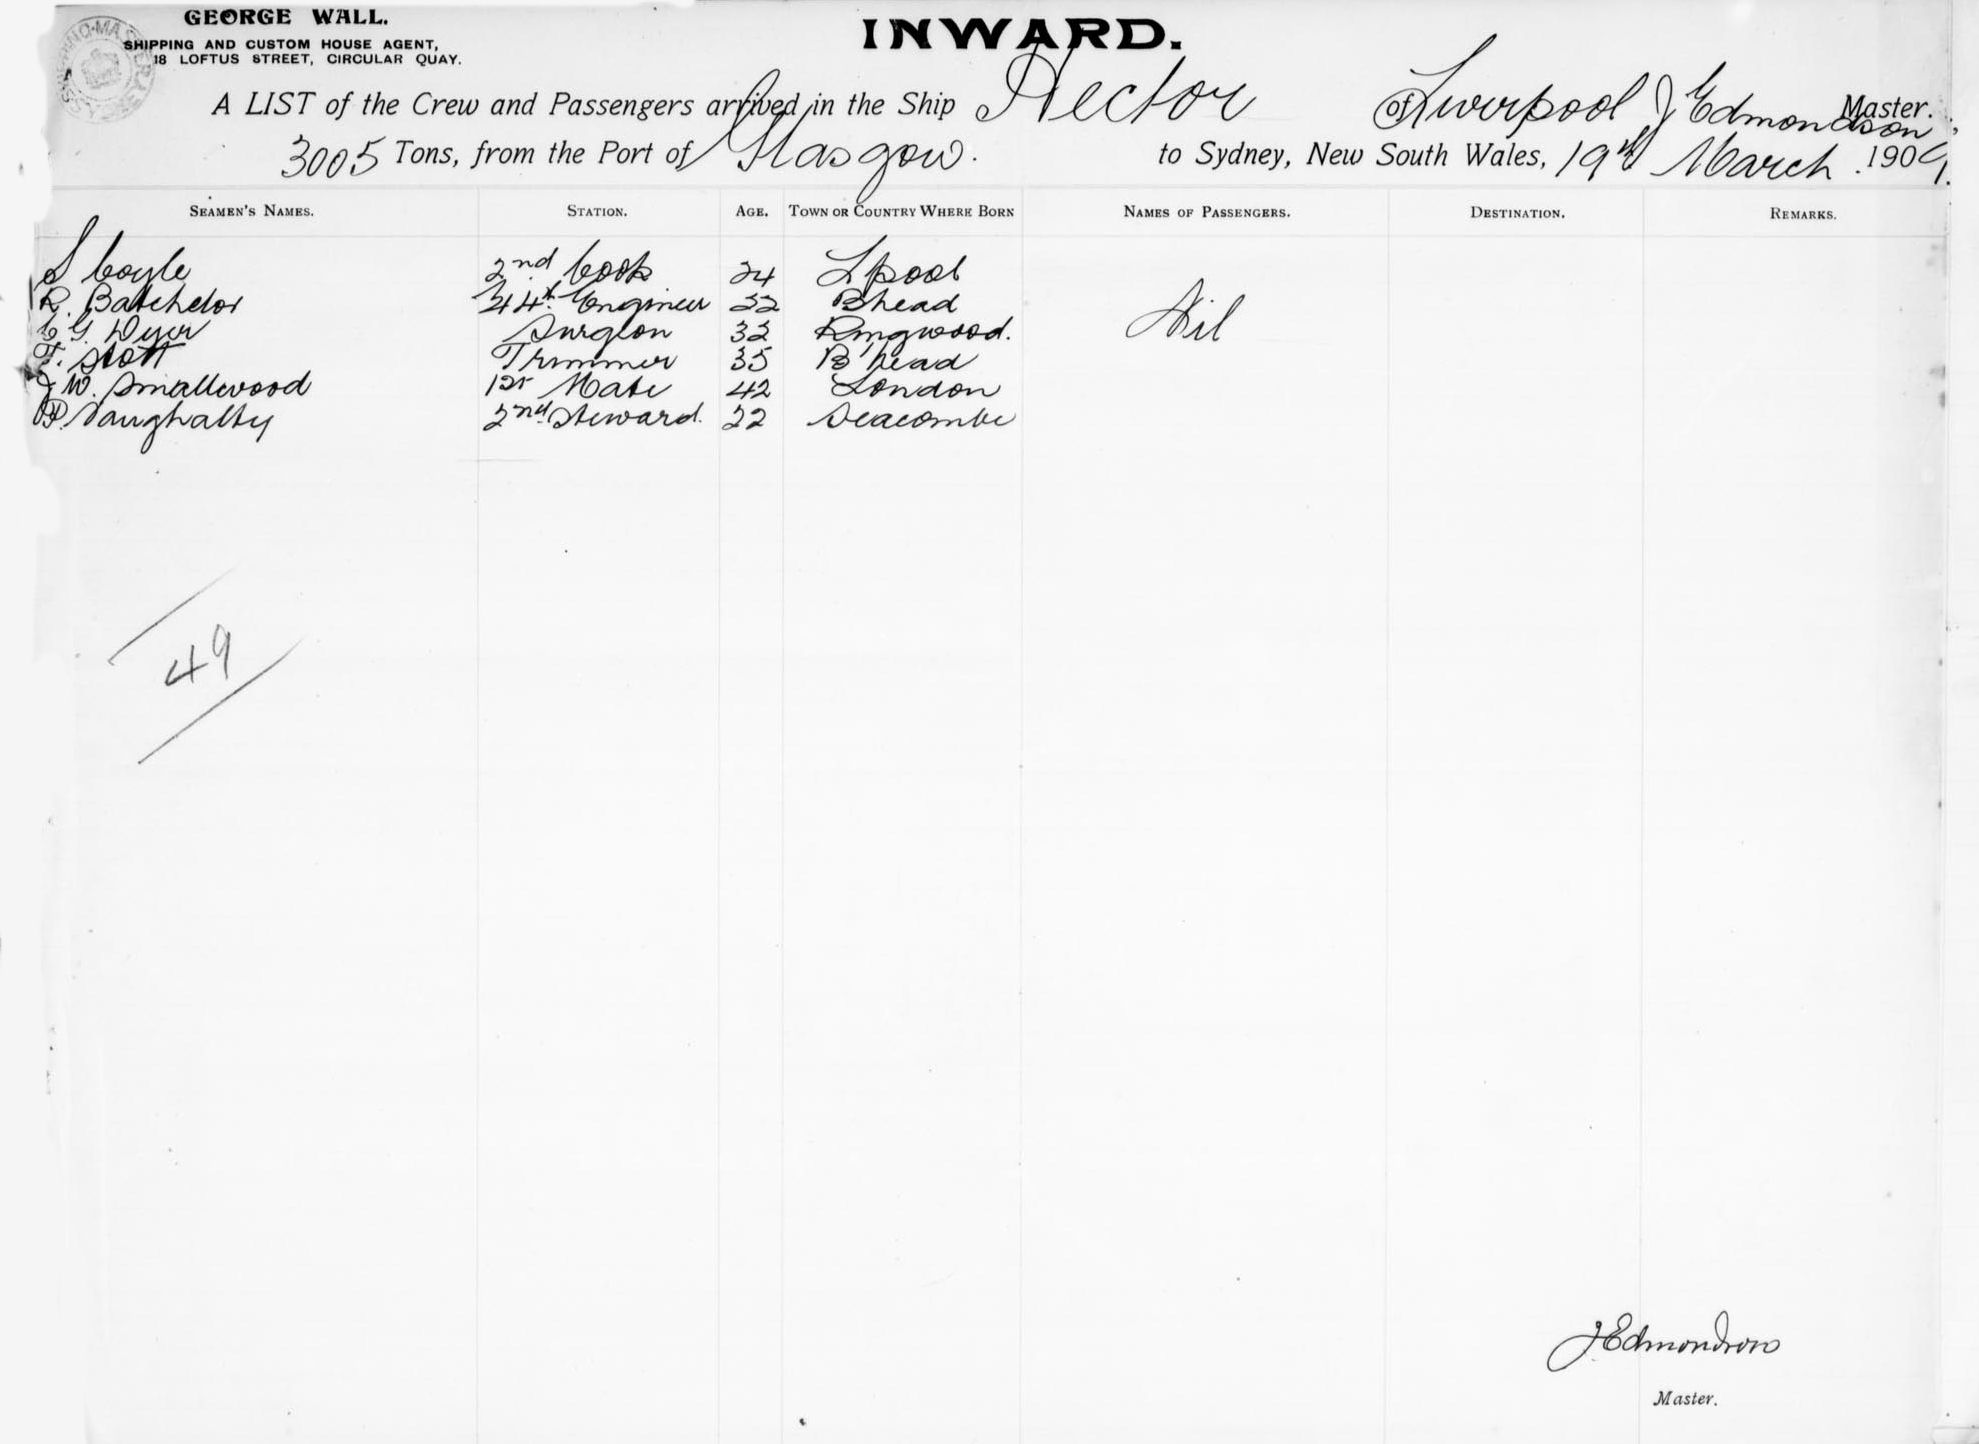 GEORGE WALL.
SHIPPING AND CUSTOM HOUSE AGENT,
18 LOFTUS STREET, CIRCULAR QUAY.
INWARD.
A LIST of the Crew and Passengers arrived in the Ship Hector of Liverpool J Edmondson Master.
3005 Tons, from the Port of Glasgow. to Sydney, New South Wales, 19th March 1909.
SEAMEN'S NAMES. STATION. AGE. TOWN OR COUNTRY WHERE BORN NAMES OF PASSENGERS. DESTINATION. REMARKS.
S Coyle 2nd Cook 24 Lpool
R. Batchelor 4th Engineer 22 Bhead Nil
C G Dyer Surgeon 32 Ringwood.
F. Stott Trimmer 35 B'head
J W. Smallwood 1st Mate 42 London
2nd Steward. 22 Seacombe
49
J Edmondson
Master.